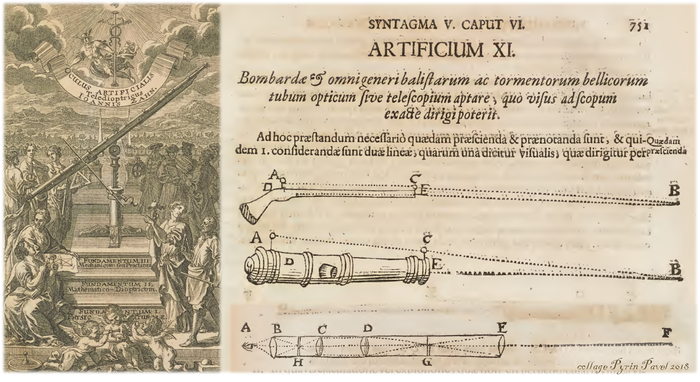 OCULUS ARTIFICIALIS
Teledioptricus
IOANNIS ZAHN.
FUNDAMENTUM III.
FUNDAMENTUM II.
Mathematico-Dioptricum.
SYNTAGMA V. CAPUT VI. 751
ARTIFICIUM XI.
Bombardæ & omnigeneri balistarum ac tormentorum bellicorum
tubum opticum sive telescopium aptare, quò visus ad scopum
exactè dirigi poterit.
Ad hoc præstandum necessariò quædam præscienda & prænotanda sunt, & qui- Quædam
dem 1. considerandæ sunt duæ lineæ, quarum una dicitur visualis, quæ dirigitur per præscienda
A C
D E B
A C
D E B
A B C D E F
H G
collage Pyrin Pavel 2018